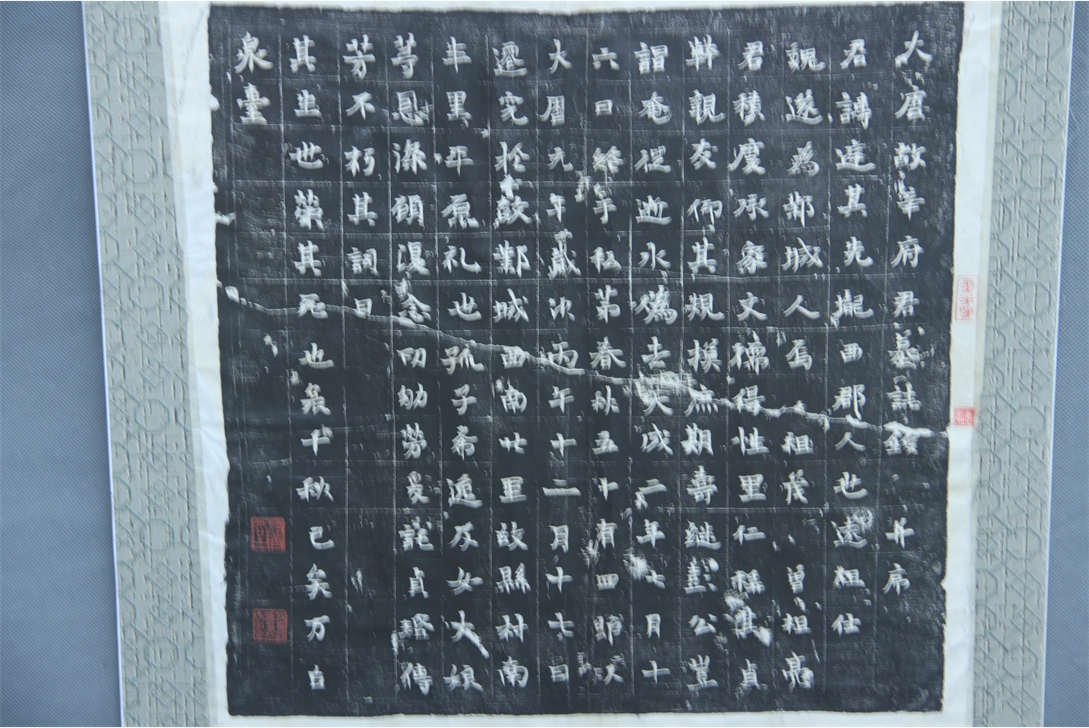 大唐故辛府君墓誌銘并序
君諱連其先隴西郡人也遠祖仕
魏遂為鄴城人焉祖茂曾祖亮
君積慶承家文儒得性里仁稱其貞
幹親友仰其規模庶期壽継彭公豈
謂奄從逝水去矣二年七月十
六日終于私第春秋五十有四即以
大曆元年歲次丙午十二月十七日
遷窆於故鄴城西南廿里故縣村南
半里平原礼也孤子希逸及女大娘
等恩深顧復念切劬勞爰託貞傳
芳不朽其詞曰
其生也榮其死也哀千秋已矣万古
泉臺